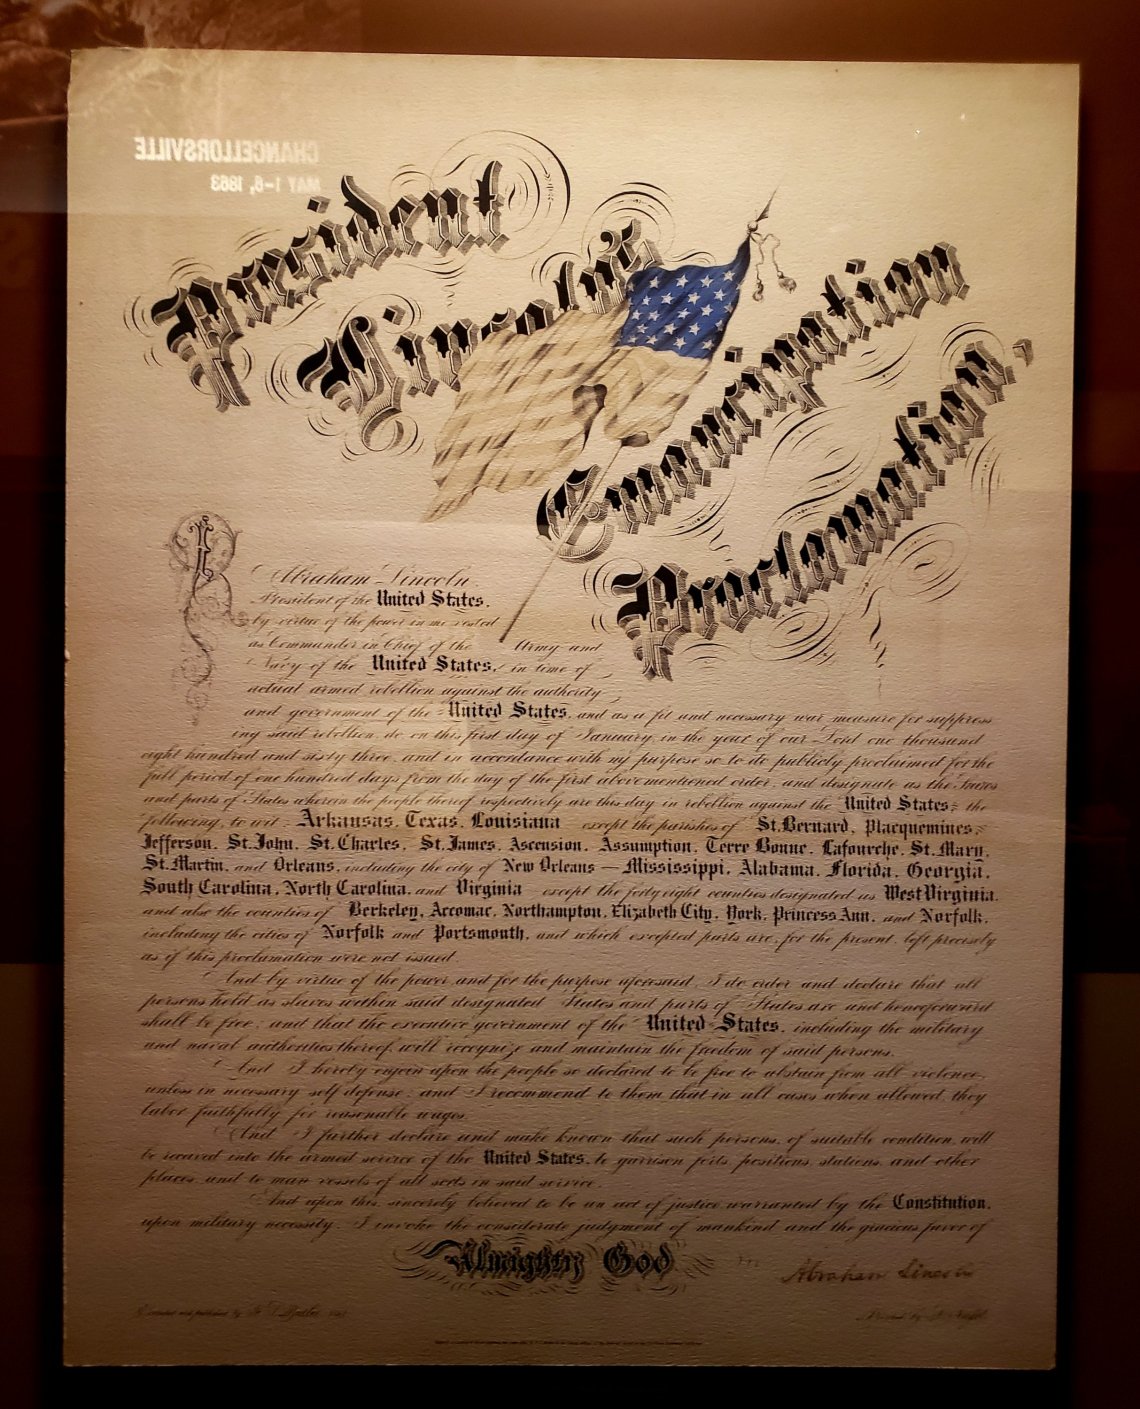 CHANCELLORSVILLE
MAY 1-6, 1863
President
Lincoln's
Emancipation
Proclamation.
I Abraham Lincoln,
President of the United States,
by virtue of the power in me vested
as Commander in Chief of the Army and
Navy of the United States, in time of
actual armed rebellion against the authority
and government of the United States, and as a fit and necessary war measure for suppress
ing said rebellion, do, on this first day of January, in the year of our Lord one thousand
eight hundred and sixty three, and in accordance with my purpose so to do publicly proclaimed for the
full period of one hundred days from the day of the first abovementioned order, and designate as the States
and parts of States wherein the people thereof respectively are this day in rebellion against the United States; the
following, to wit: Arkansas, Texas, Louisiana except the parishes of St. Bernard, Placquemines,
Jefferson, St. John, St. Charles, St. James, Ascension, Assumption, Terre Bonne, Lafourche, St. Mary,
St. Martin, and Orleans, including the city of New Orleans — Mississippi, Alabama, Florida, Georgia,
South Carolina, North Carolina, and Virginia except the forty eight counties designated as West Virginia,
and also the counties of Berkeley, Accomac, Northampton, Elizabeth City, York, Princess Ann, and Norfolk,
including the cities of Norfolk and Portsmouth, and which excepted parts are, for the present, left precisely
as if this proclamation were not issued.
And by virtue of the power, and for the purpose aforesaid, I do order and declare that all
persons held as slaves within said designated States and parts of States are and henceforward
shall be free; and that the executive government of the United States, including the military
and naval authorities thereof, will recognize and maintain the freedom of said persons.
And I hereby enjoin upon the people so declared to be free to abstain from all violence,
unless in necessary self defense; and I recommend to them that in all cases when allowed, they
labor faithfully for reasonable wages.
And I further declare and make known that such persons, of suitable condition, will
be received into the armed service of the United States, to garrison forts, positions, stations, and other
places, and to man vessels of all sorts in said service.
And upon this, sincerely believed to be an act of justice warranted by the Constitution,
upon military necessity, I invoke the considerate judgment of mankind and the gracious favor of
Almighty God
Abraham Lincoln